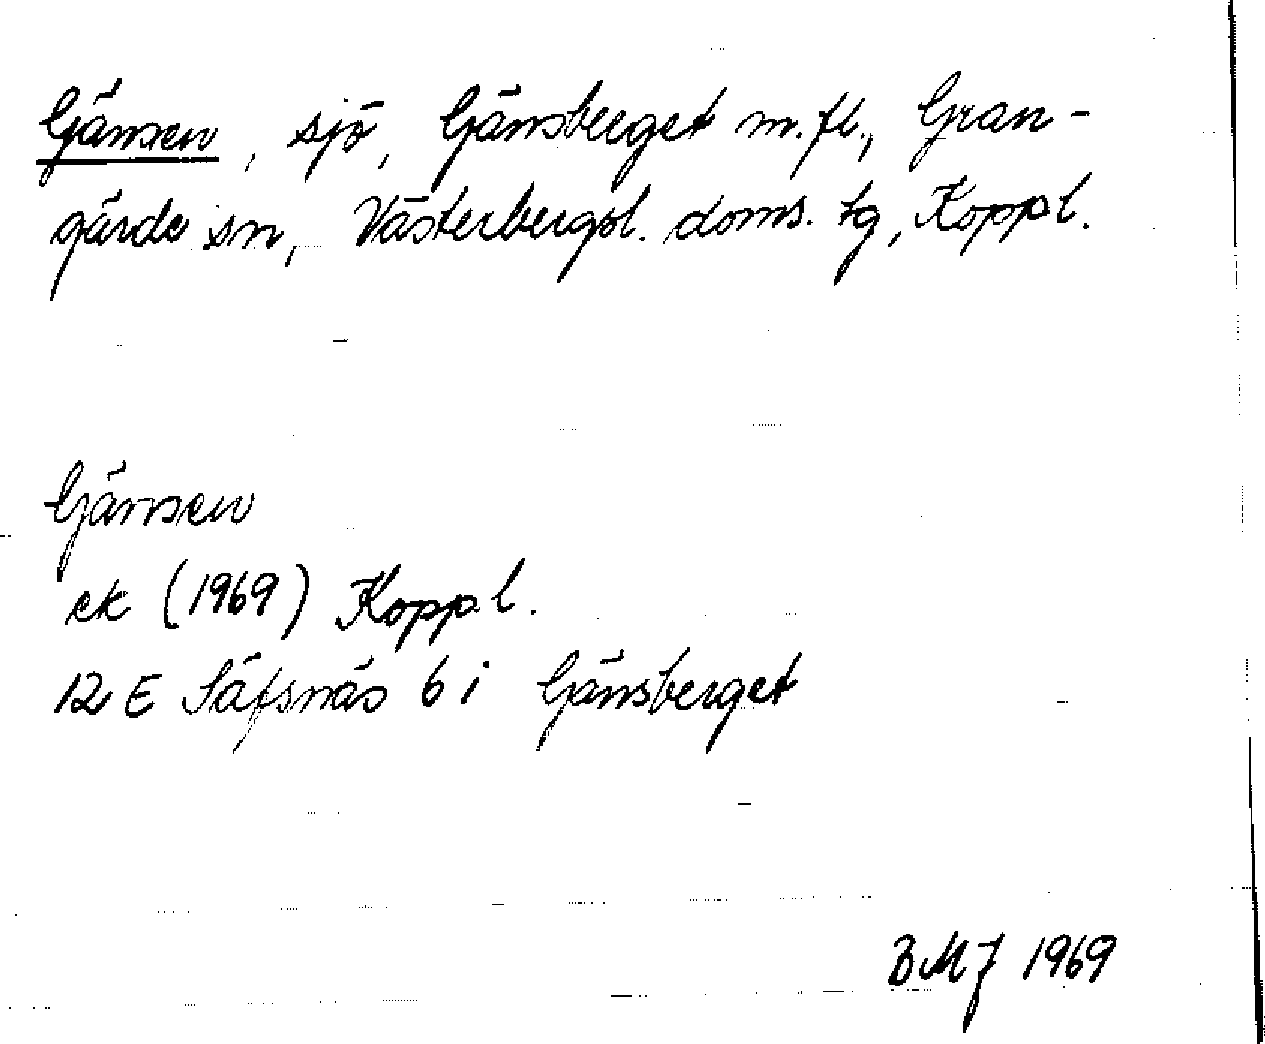 Gänsen, sjö, Gänsberget m.fl., Gran-
gärde sn, Västerbergsl. doms. tg, Koppl.
Gänsen
ek (1969) Koppl.
12 E Säfsnäs 6 i Gänsberget
BMJ 1969